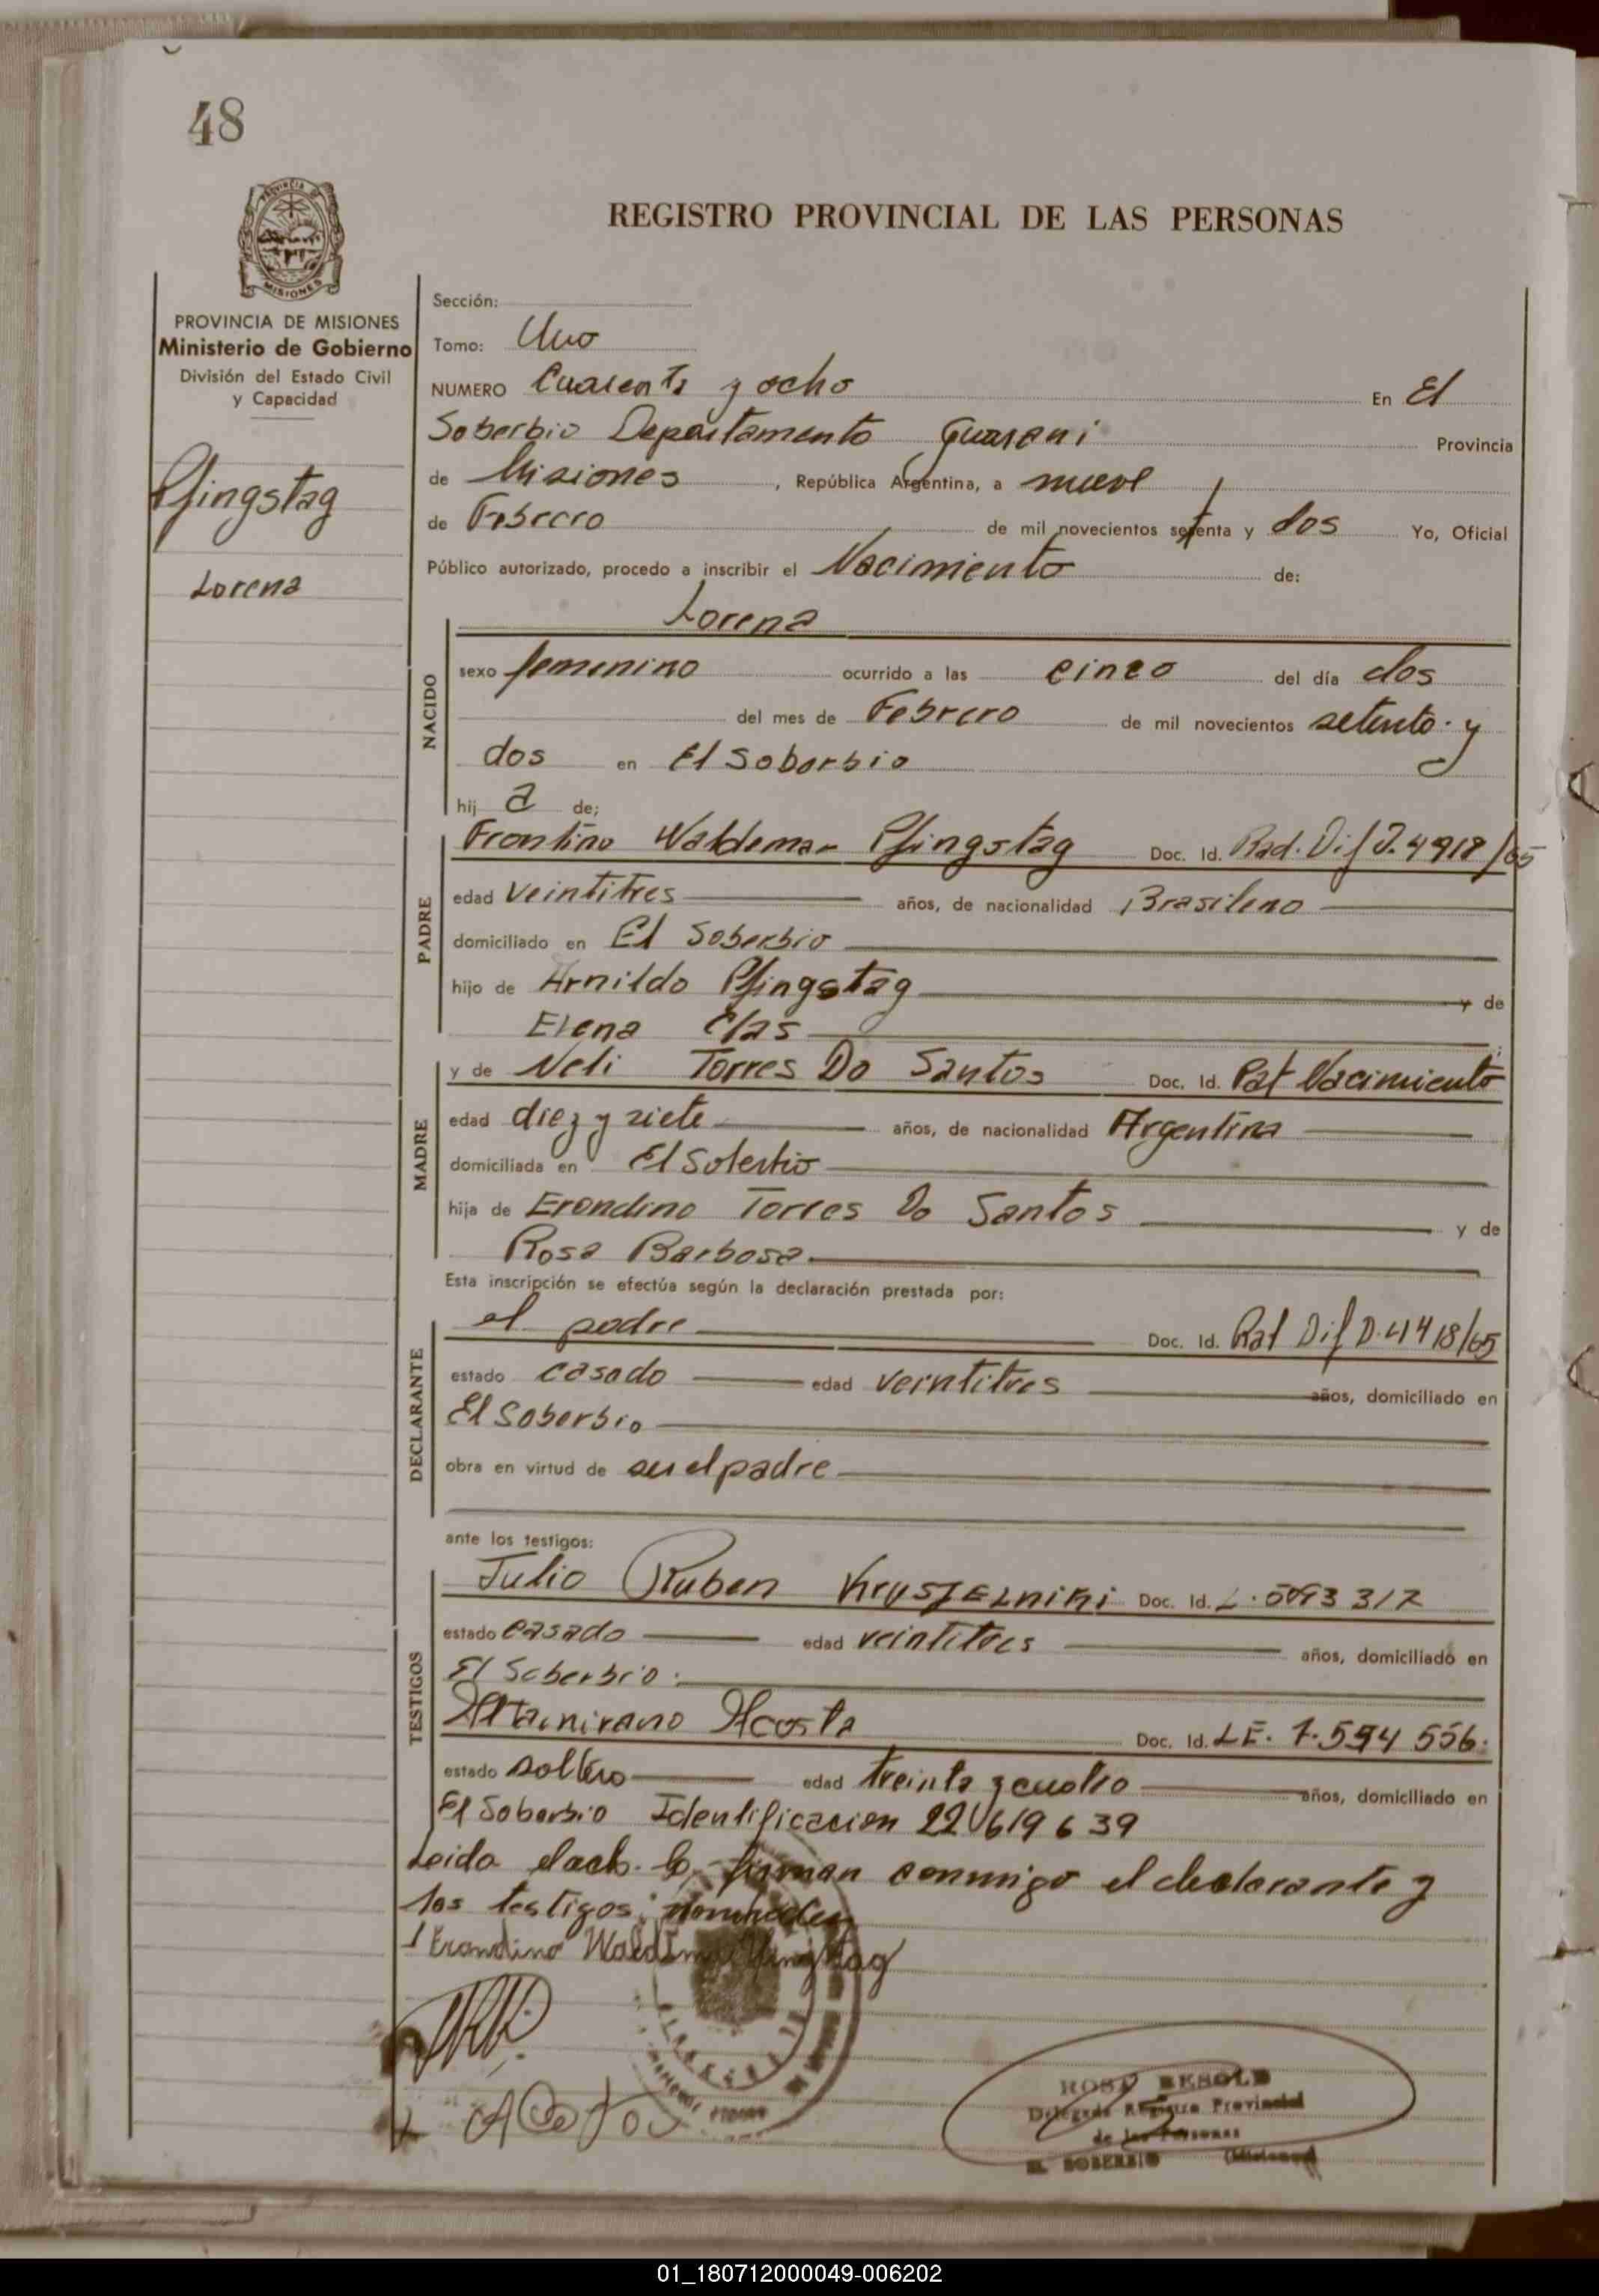 48
PROVINCIA DE
MISIONES
REGISTRO PROVINCIAL DE LAS PERSONAS
PROVINCIA DE MISIONES
Ministerio de Gobierno
División del Estado Civil
y Capacidad
Pfingstag
Lorena
Sección:
Tomo: Uno
NUMERO Cuarenta y ocho En El
Soberbio Departamento Guarani Provincia
de Misiones, República Argentina, a nueve
de Febrero de mil novecientos setenta y dos Yo, Oficial
Público autorizado, procedo a inscribir el Nacimiento de:
Lorena
NACIDO
sexo femenino ocurrido a las cinco del día dos
del mes de Febrero de mil novecientos setenta y
dos en El Soberbio
hij a de;
PADRE
Frontino Waldemar Pfingstag Doc. Id. Rad. Dif D. 4918/65
edad veintitres años, de nacionalidad Brasileno
domiciliado en El Soberbio
hijo de Arnildo Pfingstag y de
Elena Elas
MADRE
y de Neli Torres Do Santos Doc. Id. Pat Nacimiento
edad diez y siete años, de nacionalidad Argentina
domiciliada en El Soberbio
hija de Erondino Torres Do Santos y de
Rosa Barbosa
Esta inscripción se efectúa según la declaración prestada por:
DECLARANTE
el padre Doc. Id. Rat Dif D. 4918/65
estado casado edad veintitres años, domiciliado en
El Soberbio
obra en virtud de ser el padre
ante los testigos:
TESTIGOS
Julio Ruben Doc. Id. L.
estado casado edad veintitres años, domiciliado en
El Soberbio.
Altamirano Acosta Doc. Id. LE. 7.594 556.
estado soltero edad treinta y cuatro años, domiciliado en
El Soberbio Identificacion 22 619 639
Leida el acta la firman conmigo el declarante y
los testigos nombrados
Pfingstag
ROSA BESOLD
Delegada Registro Provincial
de las Personas
EL SOBERBIO (Misiones)
01_180712000049-006202